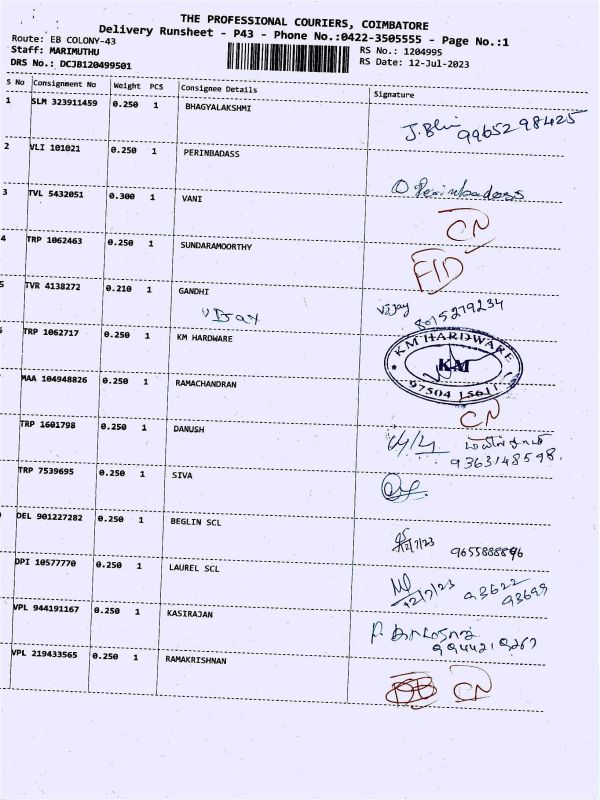 THE PROFESSIONAL COURIERS, COIMBATORE
Delivery Runsheet - P43 - Phone No.:0422-3505555 - Page No.:1
Route: EB COLONY-43
Staff: MARIMUTHU
DRS No.: DCJB120499501
RS No.: 1204995
RS Date: 12-Jul-2023
S No Consignment No Weight PCS Consignee Details Signature
1 SLM 323911459 0.250 1 BHAGYALAKSHMI
9965298425
2 VLI 101021 0.250 1 PERINBADASS
Perinbadass
3 TVL 5432051 0.300 1 VANI
CN
4 TRP 1062463 0.250 1 SUNDARAMOORTHY
5 TVR 4138272 0.210 1 GANDHI
VIJAY
Vijay
8015279234
TRP 1062717 0.250 1 KM HARDWARE
KM HARDWARE
KM
97504 15611
MAA 104948826 0.250 1 RAMACHANDRAN
CN
TRP 1601798 0.250 1 DANUSH
9363148598.
TRP 7539695 0.250 1 SIVA
DEL 901227282 0.250 1 BEGLIN SCL
12/7/23 9655888896
DPI 10577770 0.250 1 LAUREL SCL
12/7/23 93622
93699
VPL 944191167 0.250 1 KASIRAJAN
VPL 219433565 0.250 1 RAMAKRISHNAN
CN